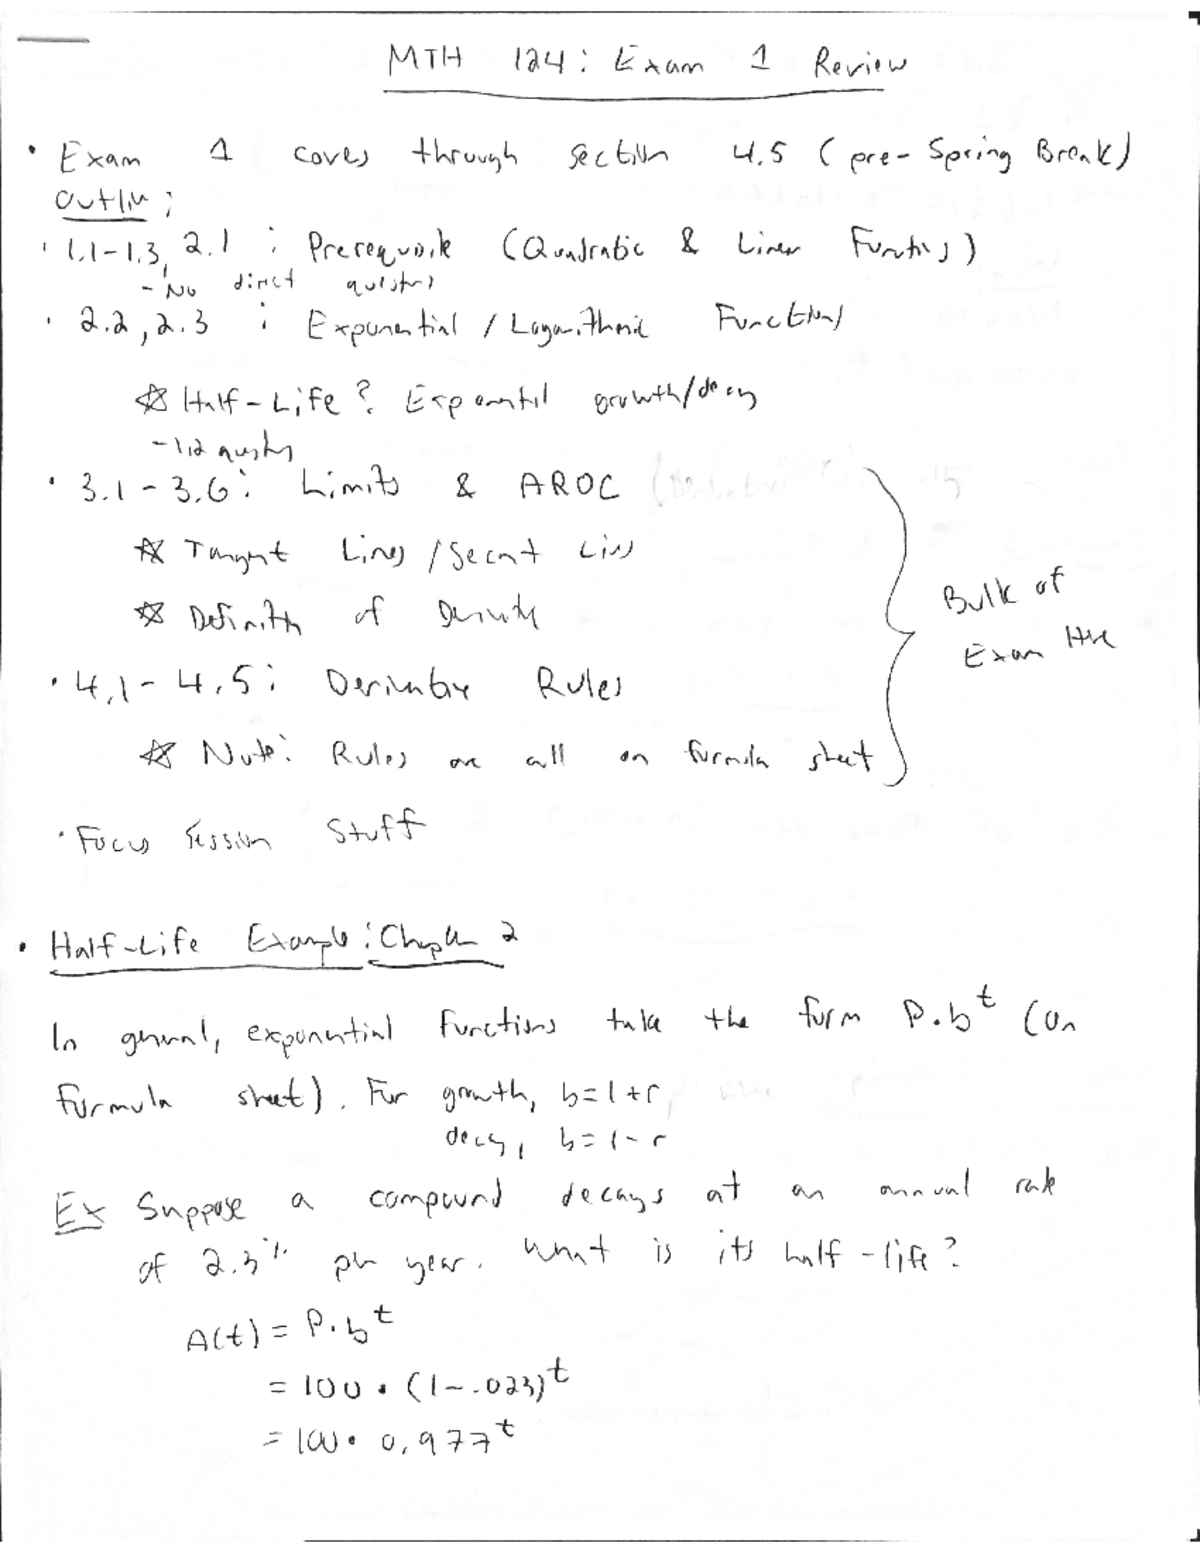 MTH 124: Exam 1 Review
• Exam 1 covers through section 4.5 (pre-Spring Break)
Outline:
• 1.1-1.3, 2.1 : Prerequisite (Quadratic & Linear Functions)
- No direct questions
• 2.2, 2.3 : Exponential / Logarithmic Functions
☆ Half-Life? Exponential growth/decay
- 1,2 questions
• 3.1-3.6: Limits & AROC
☆ Tangent Lines / Secant Lines
☆ Definition of Derivative
Bulk of
Exam Here
• 4.1-4.5: Derivative Rules
☆ Note: Rules are all on formula sheet
• Focus Session Stuff
• Half-Life Example: Chapter 2
In general, exponential functions take the form P·b^t (on
formula sheet). For growth, b=1+r,
decay, b=1-r
Ex Suppose a compound decays at an annual rate
of 2.3% per year. What is its half-life?
A(t) = P·b^t
= 100 · (1-.023)^t
= 100 · 0.977^t